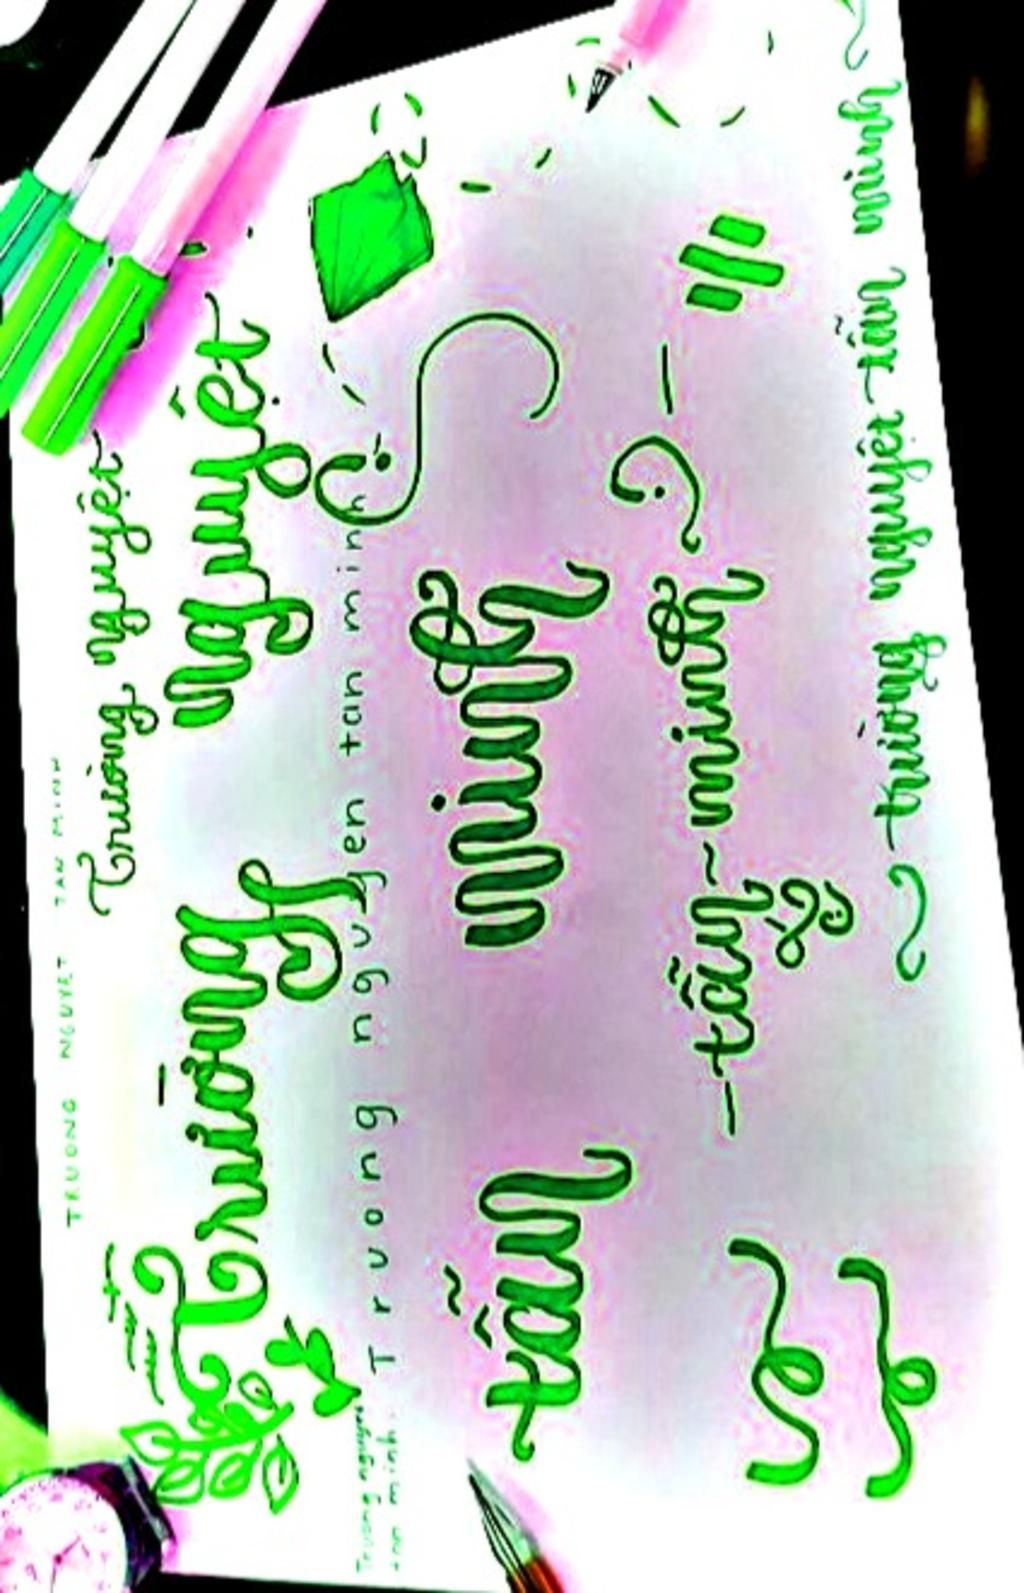 TRUONG NGUYET TAN MINH
Trương nguyệt
Trương nguyệt
Truong nguyen tan minh
Truong nguyen
tan minh
tấn minh
tấn ~ minh
trương nguyệt tấn minh